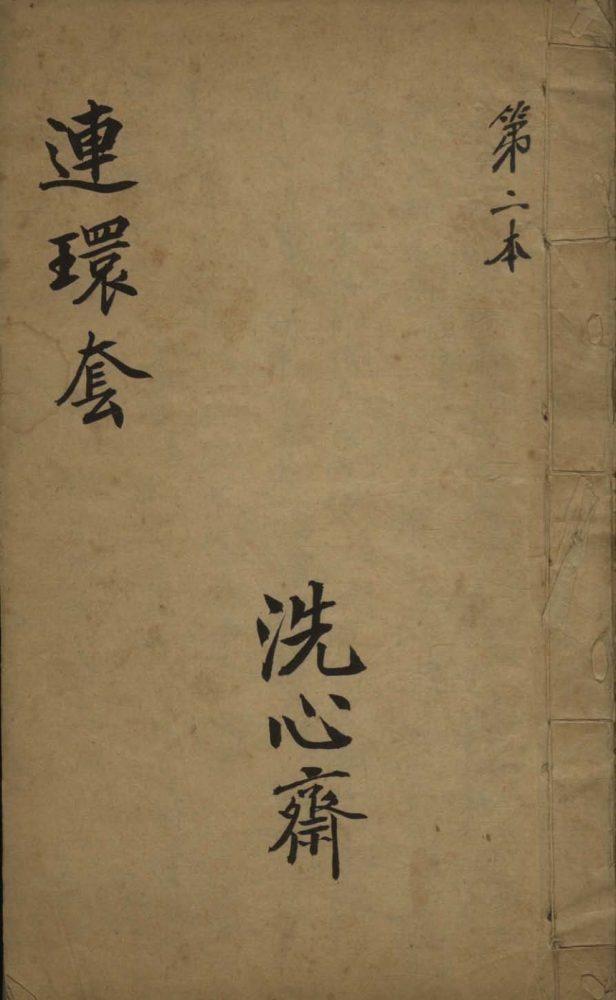 第二本
洗心齋
連環套